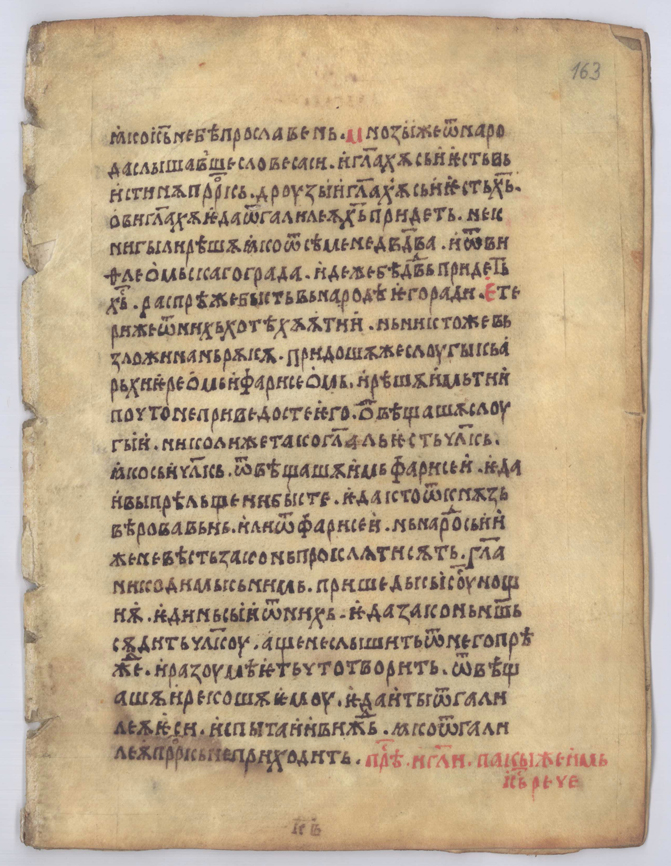 163
ꙗ҆коі҆с҃ънебѣпрославенъ· мноꙁыжеѿнаро
даслышавшесловесаси· и҆гл҃ахѫсьи҆естьвь
и҆стинѫпрⷪ҇ркъ· дроуꙁыи҆гл҃ахѫсьи҆естьх҃ъ·
овигл҃ахѫе҆даѿгалилеѫх҃ъпридеть· нек
нигылирѣшѫꙗ҆коѿсѣменедв҃два· и҆ѿви
ѳлеѡ҆мьскаградa· и҆дежебѣдв҃дъпридеть
х҃ъ· распрѣжебыстьвьнародѣе҆горади· е҆те
рижеѿнихьхотѣхѫѧтии҆· нъниктожевь
ꙁложинаньрѫкѫ· придошѫжеслоугыкьа
рьхии҆реѡ҆мьи҆фарисеѡ҆мь· и҆рѣшѫи҆мьтии҆
поутонеприведостее҆го· ѿвѣщашѫслоу
гыи҆· николижетакогл҃альестьчл҃къ·
ꙗ҆косьичл҃къ· ѿвѣщашѫи҆мьфарисеи҆· е҆да
и҆выпрѣльщенибысте· е҆дактоѿкнѧꙁь
вѣровавьнь· и҆лиѿфарисеи҆· нънарⷪ҇сьии҆
женевѣстьꙁаконьпроклѧтисѫть· гл҃а
никодималькънимь· пришедыкъі҆с҃оунощ
иѫ· е҆диньсыи҆ѿнихь· е҆даꙁаконьнашь
сѫдитьчл҃коу· ащенеслышитьѿнегопрѣ
жⷣе· и҆раꙁоумѣетьчтотворить· ѿвѣщ
ашѫи҆рекошѫе҆моу· е҆даи҆тыѿгали
леѫеси· и҆спытаии҆виждь· ꙗ҆коѿгали
леѫпрⷪ҇ркънеприходить· прⷣѣ· и҆гл҃и· пакыжеи҆мь
і҆с҃ърече
к҃в